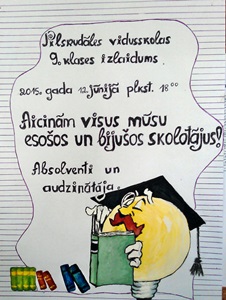 Pilsrundāles vidusskolas
9. klases izlaidums
2015. gada 12. jūnijā plkst. 18⁰⁰
Aicinām visus mūsu
esošos un bijušos skolotājus!
Absolventi un
audzinātāja.